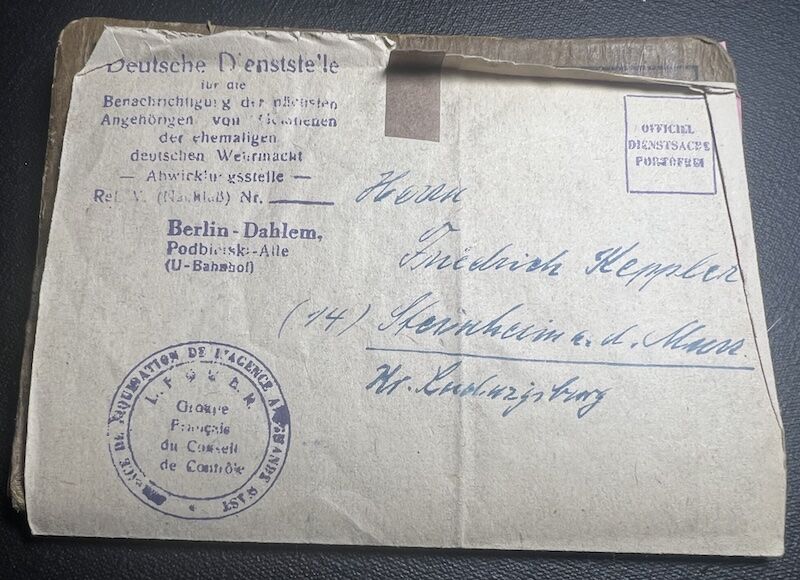 Deutsche Dienststelle
für die
Benachrichtigung der nächsten
Angehörigen von Gefallenen
der ehemaligen
deutschen Wehrmacht
— Abwicklungsstelle —
Ref. (Nachlaß) Nr.
Berlin-Dahlem,
Podbielski-Alle
(U-Bahnhof)
OFFICIEL
DIENSTSACHE
PORTOFREI
Herrn
Friedrich Keppler
(14) Steinheim a. d. Murr
Kr. Ludwigsburg
DE LIQUIDATION DE L'AGENCE ALLEMANDE W'AST
Groupe
Français
du Conseil
de Contrôle